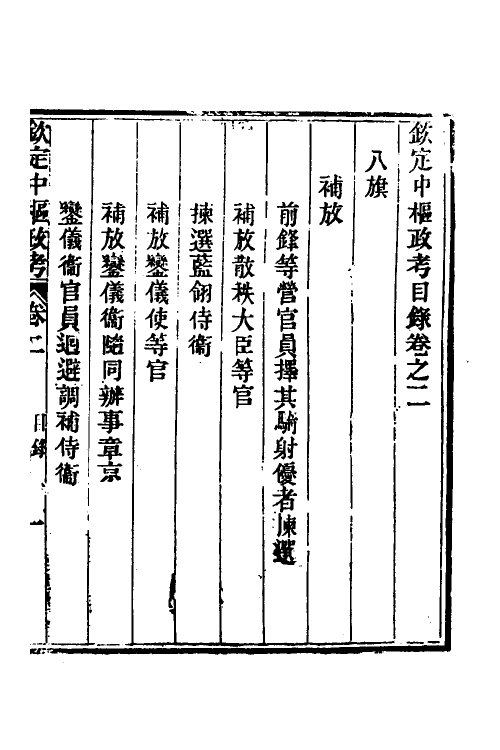 欽定中樞政考目錄卷之二
八旗
補放
前鋒等營官員擇其騎射優者揀選
補放散秩大臣等官
揀選藍翎侍衞
補放鑾儀使等官
補放鑾儀衞隨同辦事章京
鑾儀衞官員迴避調補侍衞
欽定中樞政考 卷二 目錄 一